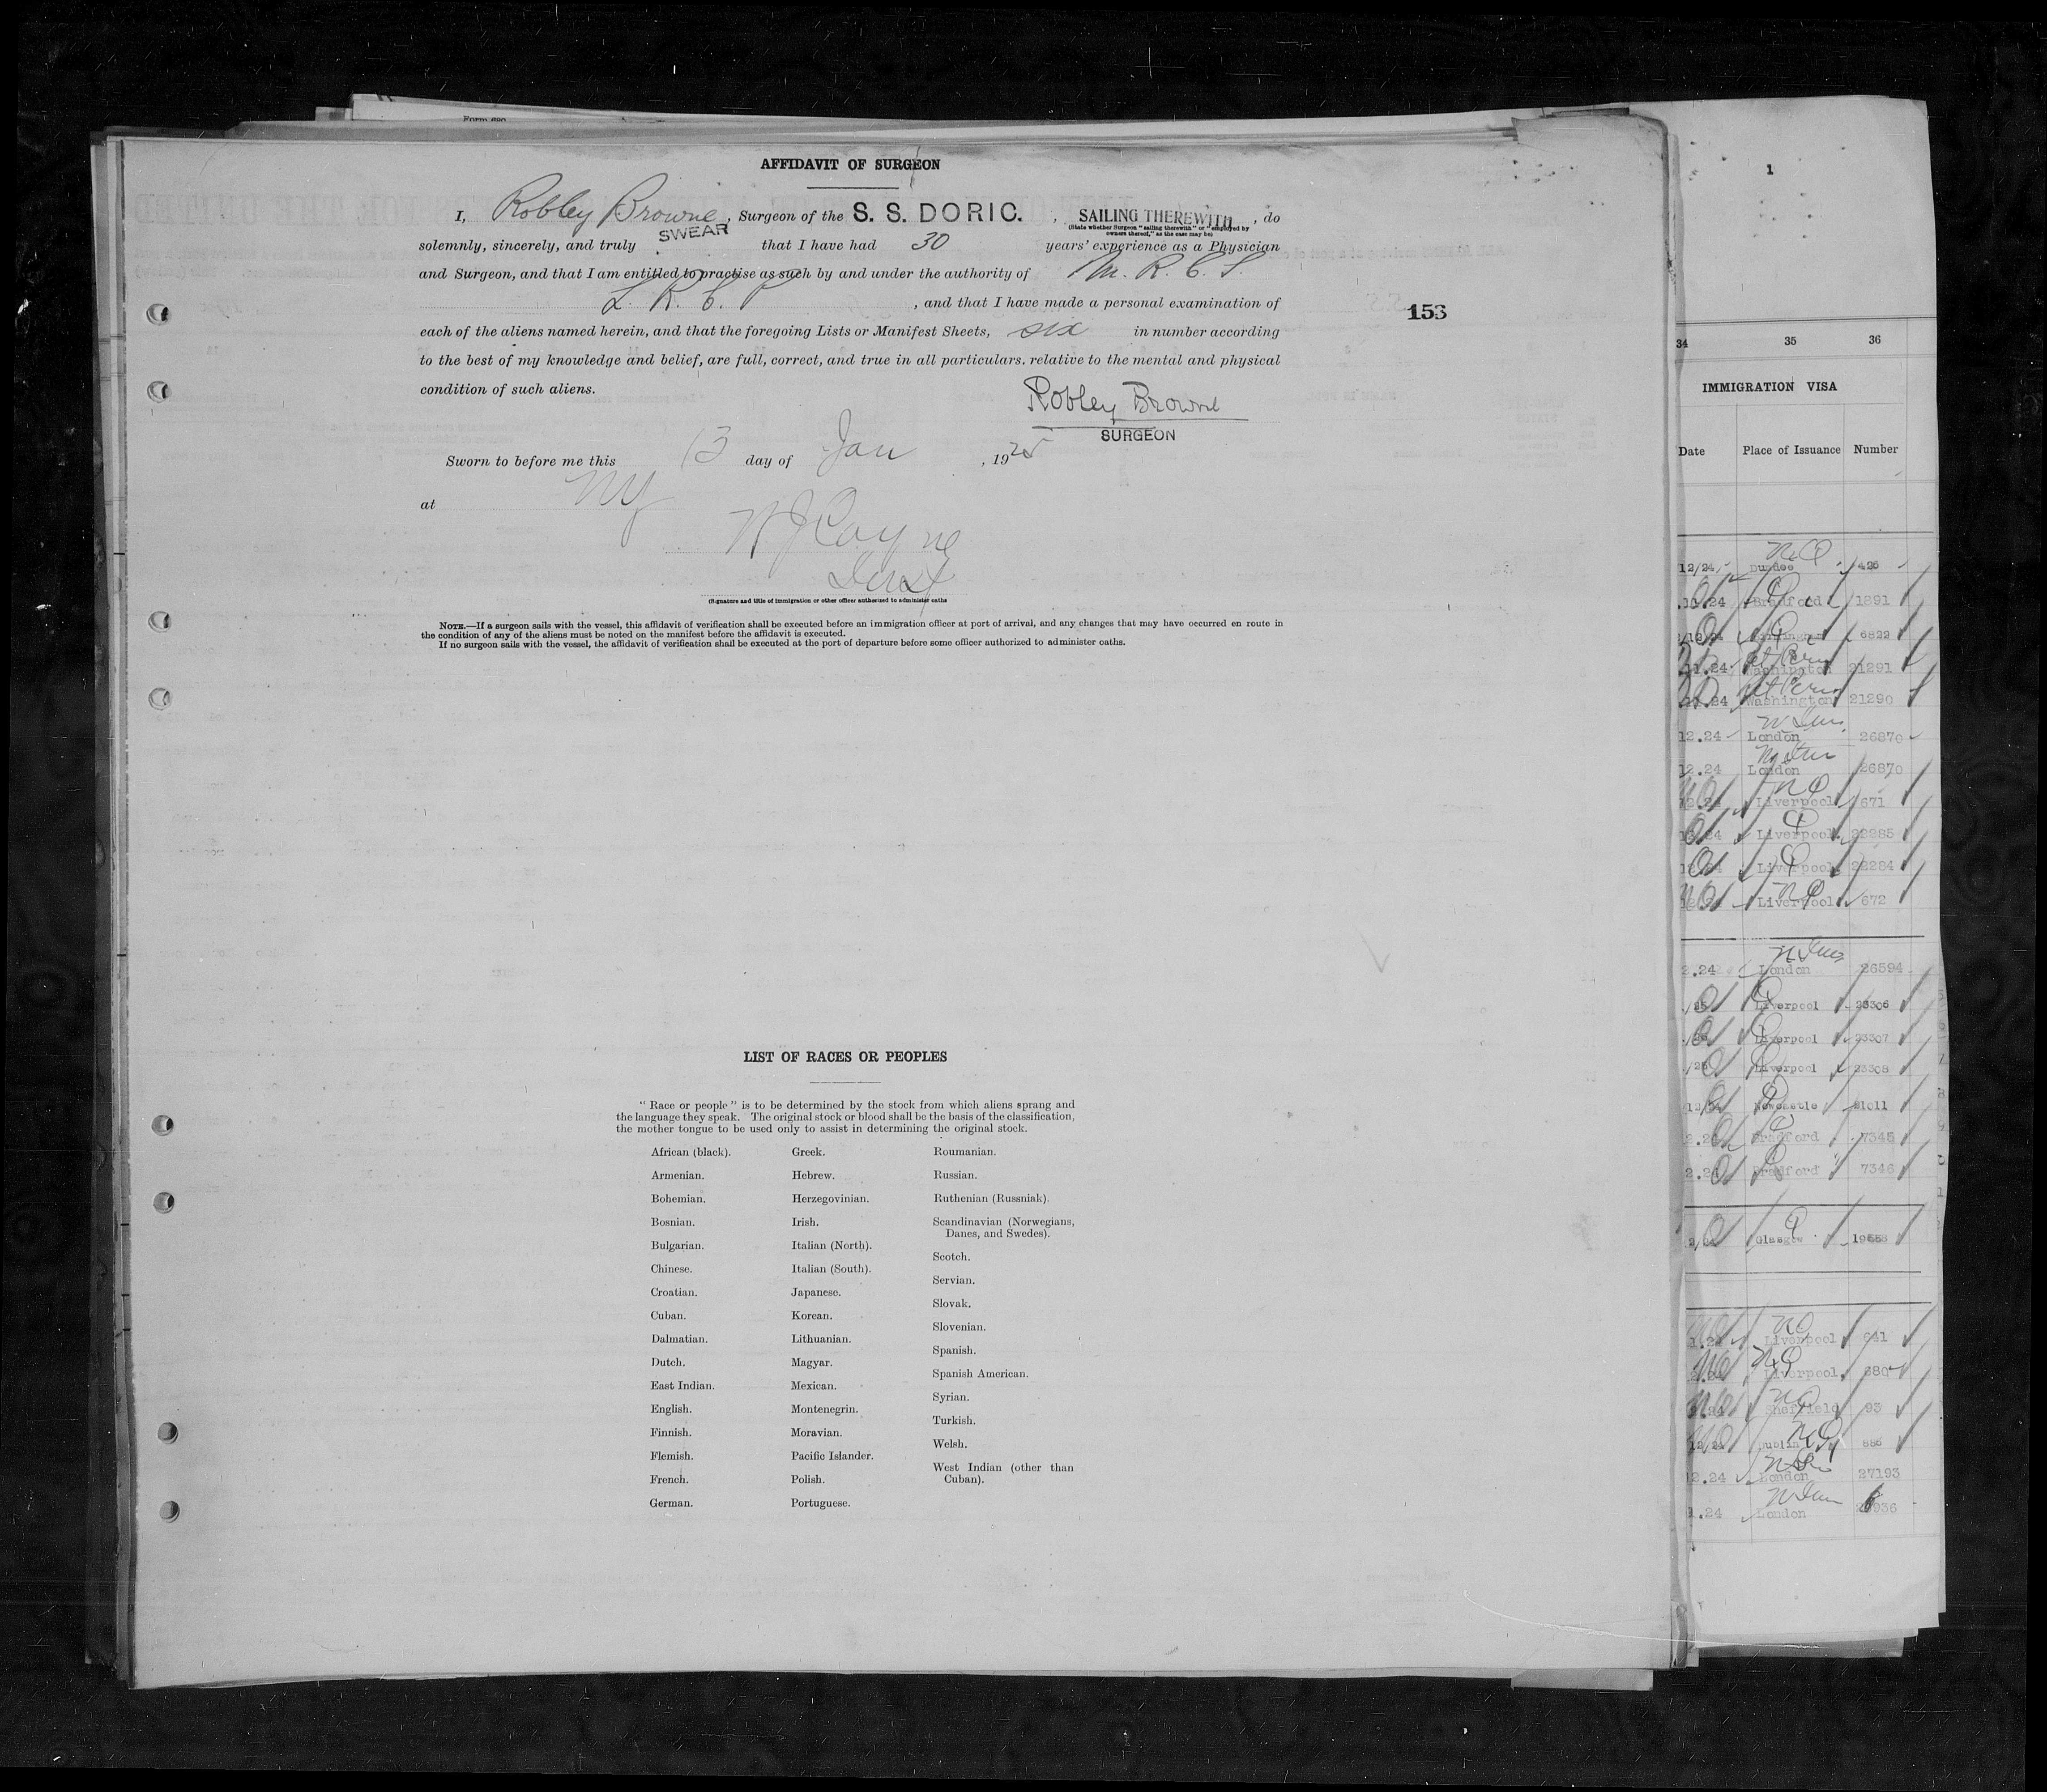 Form 680
AFFIDAVIT OF SURGEON
I, Robley Browne, Surgeon of the S. S. DORIC. , SAILING THEREWITH, do
(State whether Surgeon "sailing therewith" or "employed by
owners thereof," as the case may be)
solemnly, sincerely, and truly SWEAR that I have had 30 years' experience as a Physician
and Surgeon, and that I am entitled to practise as such by and under the authority of M. R. C. S.
L. R. C. P , and that I have made a personal examination of
each of the aliens named herein, and that the foregoing Lists or Manifest Sheets, six in number according
to the best of my knowledge and belief, are full, correct, and true in all particulars. relative to the mental and physical
condition of such aliens.
Robley Browne
SURGEON
Sworn to before me this 13 day of Jan , 1925
at NY
(Signature and title of immigration or other officer authorized to administer oaths
NOTE.—If a surgeon sails with the vessel, this affidavit of verification shall be executed before an immigration officer at port of arrival, and any changes that may have occurred en route in
the condition of any of the aliens must be noted on the manifest before the affidavit is executed.
If no surgeon sails with the vessel, the affidavit of verification shall be executed at the port of departure before some officer authorized to administer oaths.
153
LIST OF RACES OR PEOPLES
"Race or people" is to be determined by the stock from which aliens sprang and
the language they speak. The original stock or blood shall be the basis of the classification,
the mother tongue to be used only to assist in determining the original stock.
African (black).
Armenian.
Bohemian.
Bosnian.
Bulgarian.
Chinese.
Croatian.
Cuban.
Dalmatian.
Dutch.
East Indian.
English.
Finnish.
Flemish.
French.
German.
Greek.
Hebrew.
Herzegovinian.
Irish.
Italian (North).
Italian (South).
Japanese.
Korean.
Lithuanian.
Magyar.
Mexican.
Montenegrin.
Moravian.
Pacific Islander.
Polish.
Portuguese.
Roumanian.
Russian.
Ruthenian (Russniak).
Scandinavian (Norwegians,
Danes, and Swedes).
Scotch.
Servian.
Slovak.
Slovenian.
Spanish.
Spanish American.
Syrian.
Turkish.
Welsh.
West Indian (other than
Cuban).
1
34 35 36
IMMIGRATION VISA
Date Place of Issuance Number
12/24 Dundee 426
24 Bradford 1891
6822
11.24 Washington 21291
24 Washington 21290
12.24 London 26870
12.24 London 26870
Liverpool 671
24 Liverpool 22285
Liverpool 22284
Liverpool 672
2.24 London 26594
Liverpool 23306
Liverpool 23307
Liverpool 23308
Newcastle 21011
Bradford 7345
2.24 Bradford 7346
Glasgow 19558
1.24 Liverpool 641
Liverpool 680
Sheffield 93
Dublin 885
12.24 London 27193
1.24 London